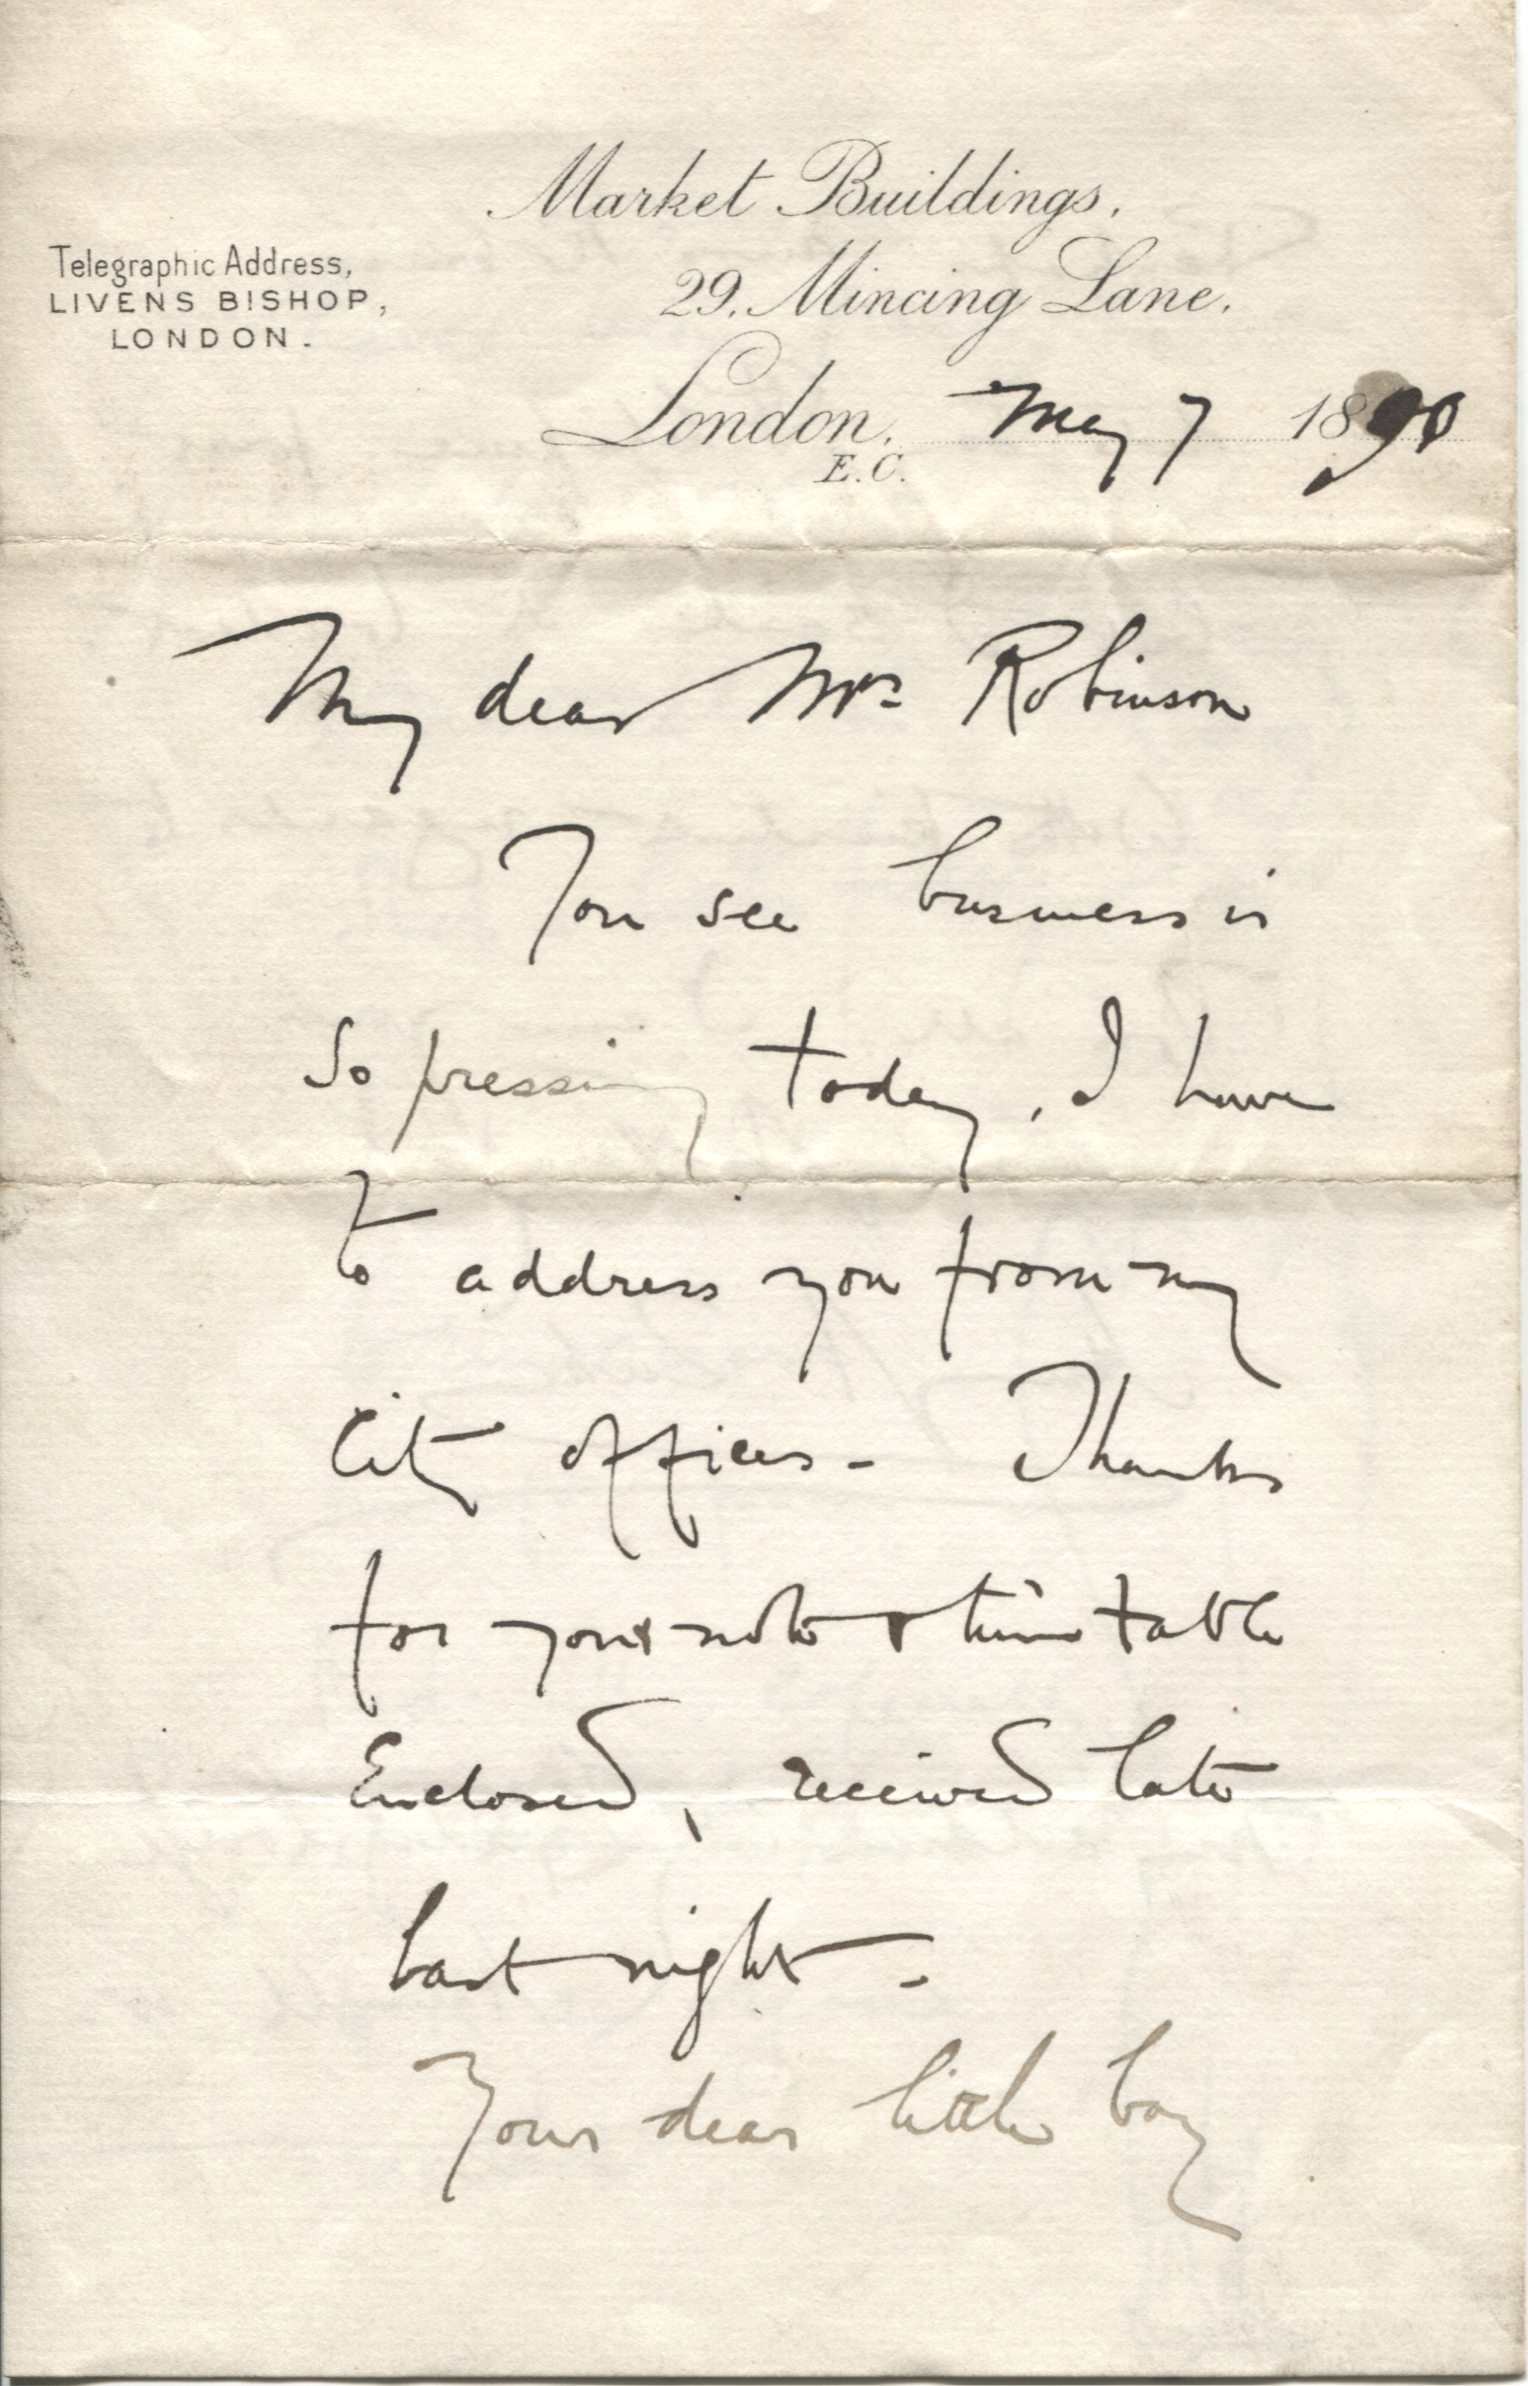 Market Buildings,
Telegraphic Address,
LIVENS BISHOP,
LONDON.
29, Mincing Lane,
London, May 7 1890
E.C.
My dear Mrs Robinson
You see business is
so pressing today, I have
to address you from my
City offices - Thanks
for your note & time table
Enclosed, received late
last night -
Your dear little boy